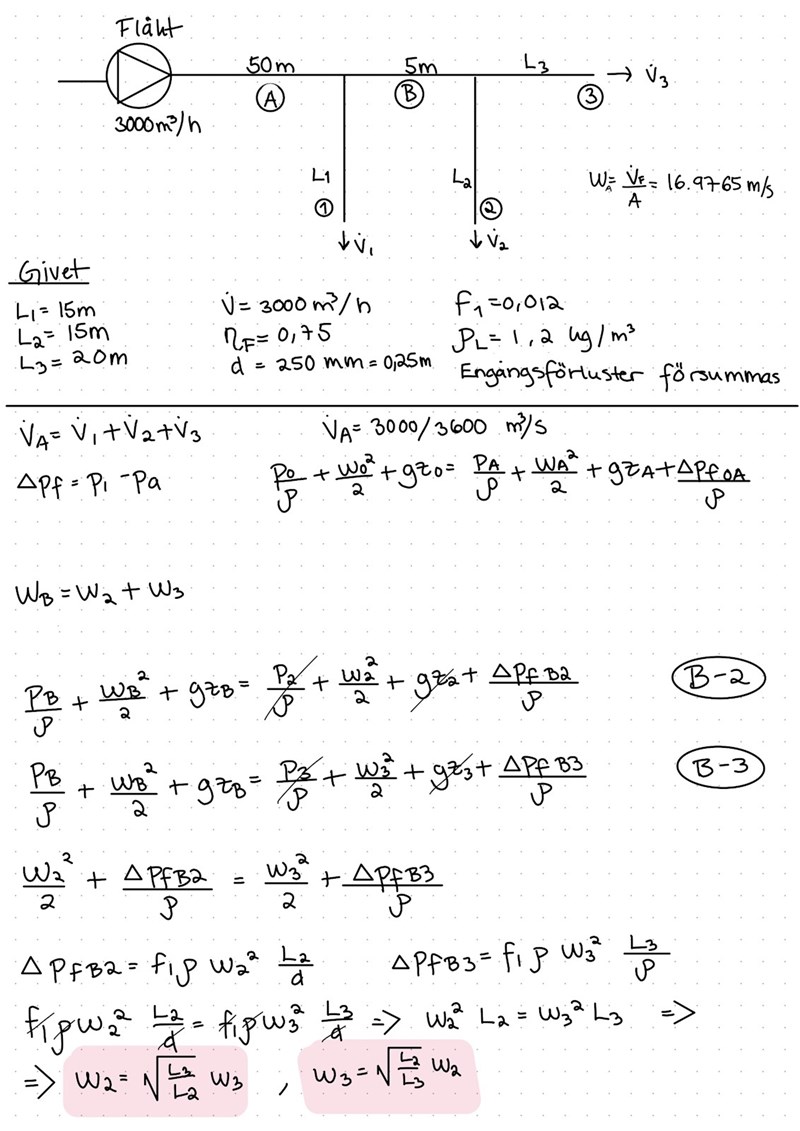 Fläkt
50m 5m L3 → V̇3
A B 3
3000m³/h
L1 L2 W_A = V̇F/A = 16.9765 m/s
1 2
↓ V̇1 ↓ V̇2
Givet
L1 = 15m V̇ = 3000 m³/h f1 = 0,012
L2 = 15m ηF = 0,75 ρL = 1,2 kg/m³
L3 = 20m d = 250 mm = 0,25m Engångsförluster försummas
V̇A = V̇1 + V̇2 + V̇3 V̇A = 3000/3600 m³/s
ΔPf = P1 - Pa P0/ρ + W0²/2 + gz0 = PA/ρ + WA²/2 + gzA + ΔPf0A/ρ
WB = W2 + W3
PB/ρ + WB²/2 + gzB = P2/ρ + W2²/2 + gz2 + ΔPfB2/ρ B-2
PB/ρ + WB²/2 + gzB = P3/ρ + W3²/2 + gz3 + ΔPfB3/ρ B-3
W2²/2 + ΔPfB2/ρ = W3²/2 + ΔPfB3/ρ
ΔPfB2 = f1 ρ W2² L2/d ΔPfB3 = f1 ρ W3² L3/ρ
f1 ρ W2² L2/d = f1 ρ W3² L3/d => W2² L2 = W3² L3 =>
=> W2 = √(L3/L2) W3 , W3 = √(L2/L3) W2